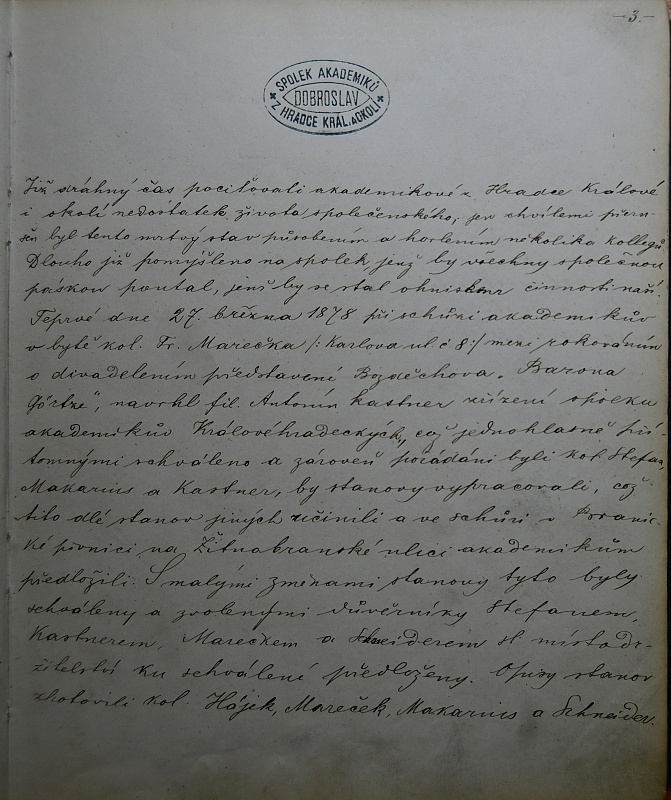 -3.-
SPOLEK AKADEMIKŮ
DOBROSLAV
Z HRADCE KRÁL. A OKOLÍ
Již dráhný čas pociťovali akademikové z Hradce Králové
i okolí nedostatek života společenského; jen chvílemi pieru-
šen byl tento mrtvý stav působením a horlením několika kollegů
Dlouho již pomýšleno na spolek jenž by všechny společnou
páskou poutal, jenž by se stal ohniskem činnosti naší.
Teprvé dne 27. března 1878 při schůzi akademikův
v bytě kol. Fr. Marečka /: Karlova ul č 8:/ mezi rokováním
o divadelením představení Bozděchova „Barona
Görtze", navrhl fil. Antonín Kastner zřízení spolku
akademikův Královéhradeckých, což jednohlasně pří-
tomnými schváleno a zároveň požádáni byli kol Stefan,
Makarius a Kastner, by stanovy vypracovali, což
tito dlé stanov jiných učinili a ve schůzi v Branic-
ké pivnici na Žitnobranské ulici akademikům
předložili. S malými změnami stanovy tyto byly
schváleny a zvolenými důvěrníky Stefanem,
Kastnerem, Marečkem a Schneiderem sl. místodr-
žitelství ku schválené předloženy. Opisy stanov
zhotovili kol. Hájek, Mareček, Makarius a Schneider.